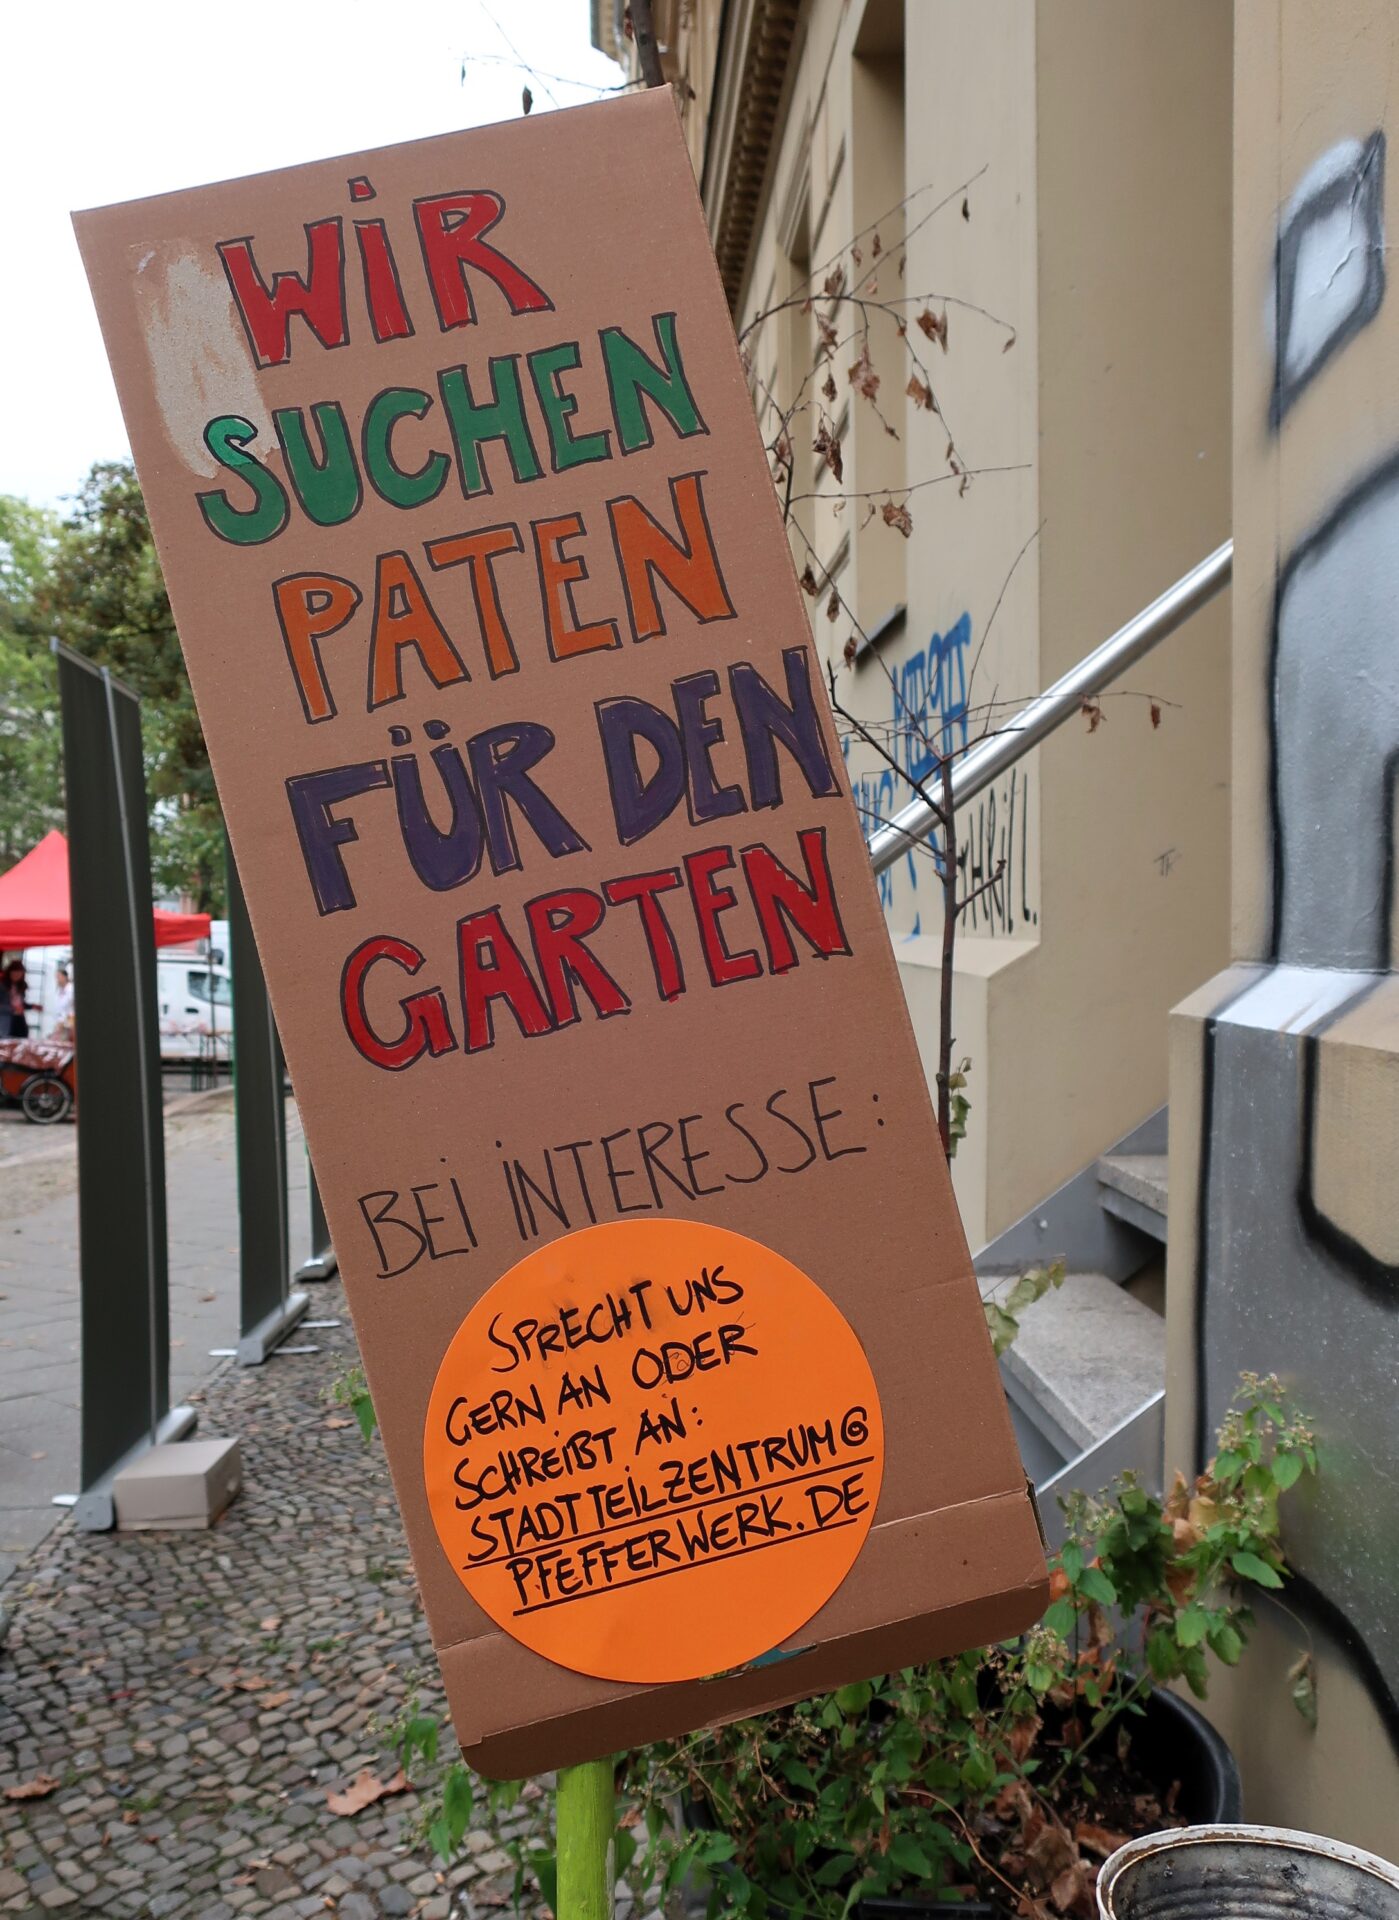 WiR
SUCHEN
PATEN
FÜR DEN
GARTEN
BEI INTERESSE:
SPRECHT UNS
GERN AN ODER
SCHREIBT AN:
STADTTEILZENTRUM@
PFEFFERWERK.DE